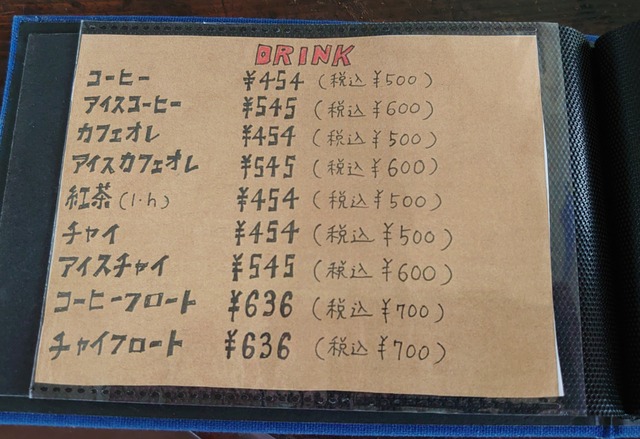 DRINK
コーヒー ¥454 (税込 ¥500)
アイスコーヒー ¥545 (税込 ¥600)
カフェオレ ¥454 (税込 ¥500)
アイスカフェオレ ¥545 (税込 ¥600)
紅茶(I・h) ¥454 (税込 ¥500)
チャイ ¥454 (税込 ¥500)
アイスチャイ ¥545 (税込 ¥600)
コーヒーフロート ¥636 (税込 ¥700)
チャイフロート ¥636 (税込 ¥700)